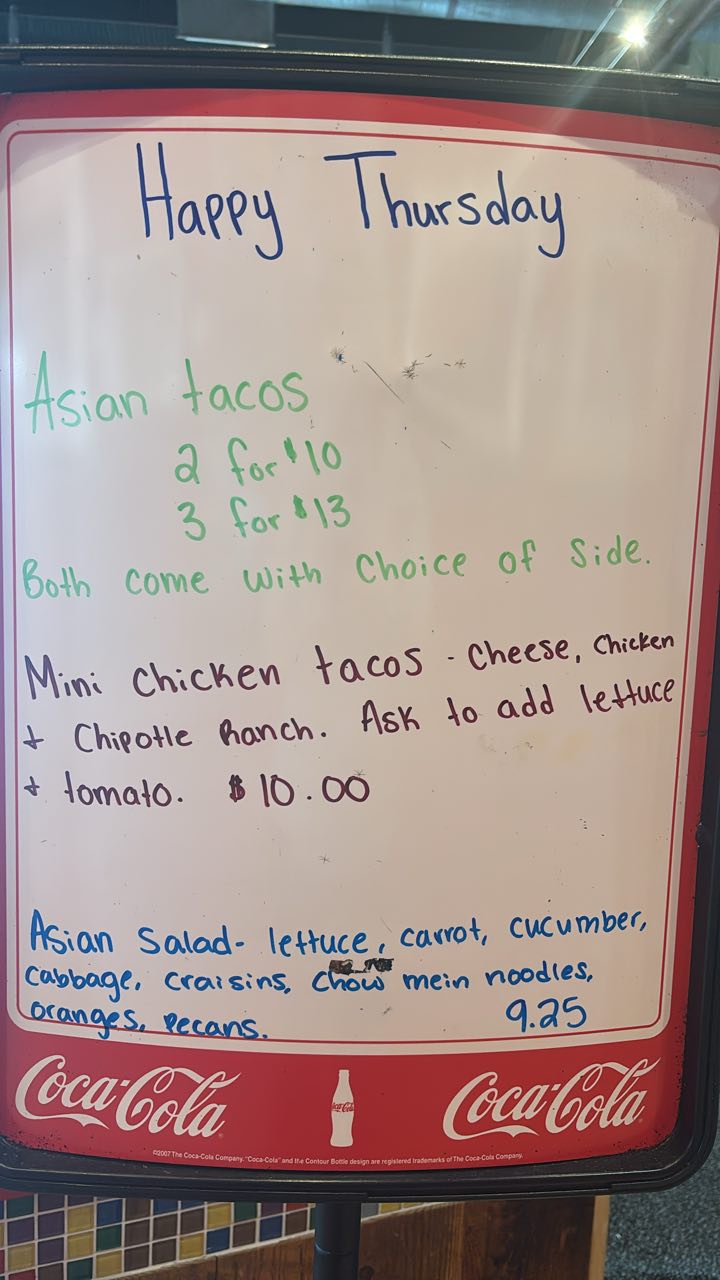 Happy Thursday
Asian tacos
2 for $10
3 for $13
Both come with choice of side.
Mini chicken tacos - cheese, chicken
+ Chipotle Ranch. Ask to add lettuce
+ tomato. $10.00
Asian Salad- lettuce, carrot, cucumber,
cabbage, craisins, chow mein noodles,
oranges, pecans. 9.25
Coca-Cola Coca-Cola Coca-Cola
©2007 The Coca-Cola Company. "Coca-Cola" and the Contour Bottle design are registered trademarks of The Coca-Cola Company.